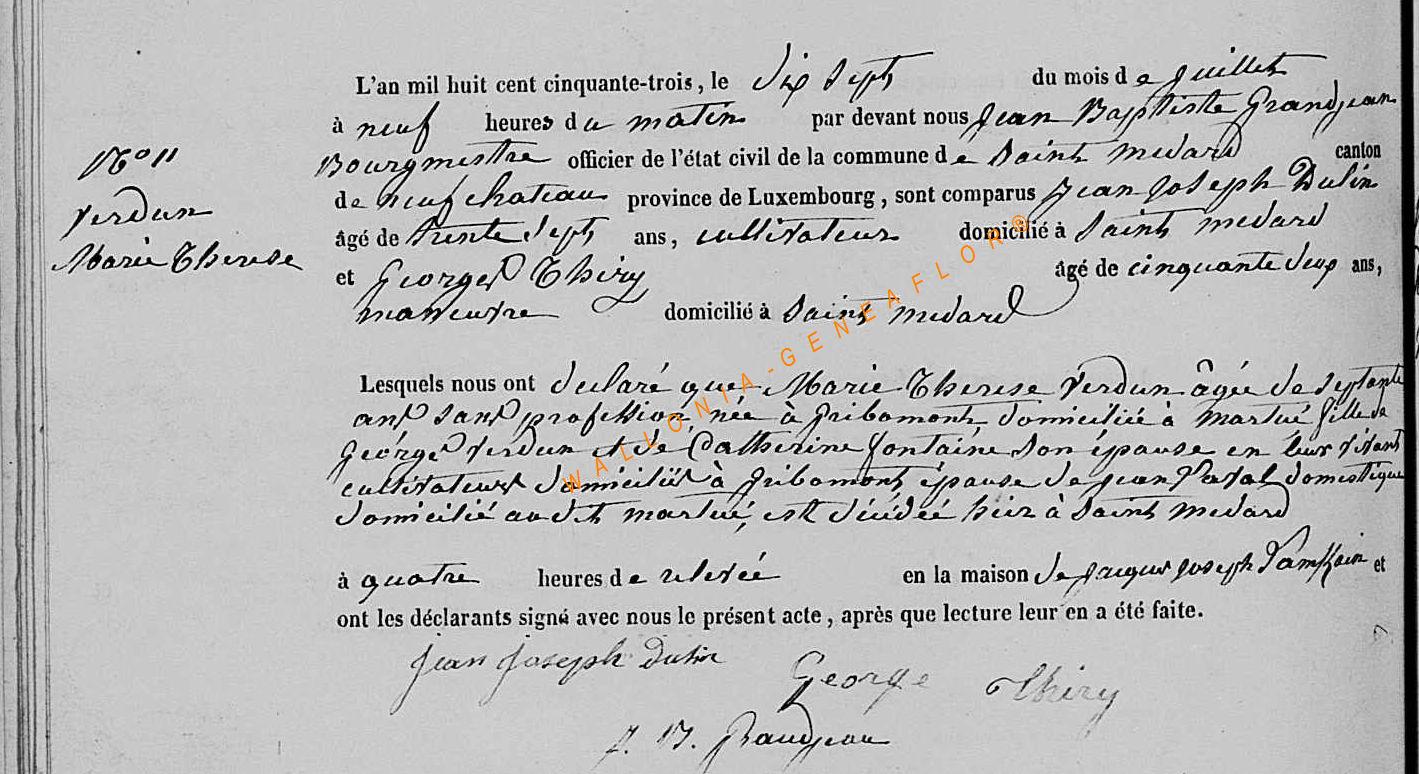 L'an mil huit cent cinquante-trois, le dix sept du mois de juillet
à neuf heures du matin par devant nous Jean Baptiste Grandjean
Bourgmestre officier de l'état civil de la commune de Saint medard canton
de neufchateau province de Luxembourg, sont comparus Jean Joseph Dulin
âgé de trente sept ans, cultivateur domicilié à Saint medard
et Georges Thiry âgé de cinquante deux ans,
manoeuvre domicilié à Saint medard
N° 11
Verdun
Marie Therese
Lesquels nous ont declaré que Marie Therese Verdun âgée de septante
ans sans profession, née à gribomont domiciliée à martué fille de
George Verdun et de Catherine fontaine son épouse en leur vivant
cultivateurs domiciliés à gribomont, épouse de jean domestique
domicilié au dit martué, est décédée hier à Saint medard
à quatre heures de relevée en la maison de jacques joseph et
ont les déclarants signé avec nous le présent acte, après que lecture leur en a été faite.
jean joseph dulin George Thiry
J. B. Grandjean
WALLONIA-GENEAFLOR®